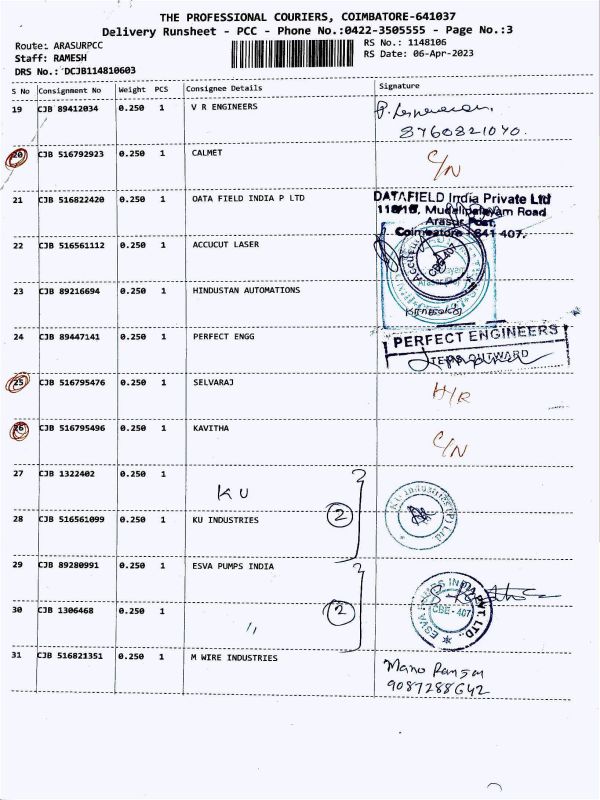 THE PROFESSIONAL COURIERS, COIMBATORE-641037
Delivery Runsheet - PCC - Phone No.:0422-3505555 - Page No.:3
Route: ARASURPCC
RS No.: 1148106
Staff: RAMESH
RS Date: 06-Apr-2023
DRS No.: DCJB114810603
S No Consignment No Weight PCS Consignee Details Signature
19 CJB 89412034 0.250 1 V R ENGINEERS
8760821070.
20 CJB 516792923 0.250 1 CALMET C/N
21 CJB 516822420 0.250 1 OATA FIELD INDIA P LTD
DATAFIELD India Private Ltd
Arasur Post,
Coimbatore - 641 407.
22 CJB 516561112 0.250 1 ACCUCUT LASER
23 CJB 89216694 0.250 1 HINDUSTAN AUTOMATIONS
24 CJB 89447141 0.250 1 PERFECT ENGG
PERFECT ENGINEERS
OUTWARD
25 CJB 516795476 0.250 1 SELVARAJ H/R
26 CJB 516795496 0.250 1 KAVITHA C/N
27 CJB 1322402 0.250 1
KU
28 CJB 516561099 0.250 1 KU INDUSTRIES 2
29 CJB 89280991 0.250 1 ESVA PUMPS INDIA
ESVA PUMPS INDIA PVT. LTD.
CBE - 407
30 CJB 1306468 0.250 1 2
〃
31 CJB 516821351 0.250 1 M WIRE INDUSTRIES
Mano
9087288642